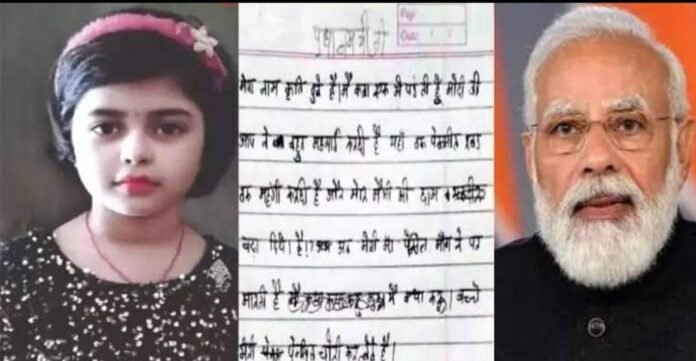 प्रधानमंत्री जी
Page
Date
मेरा नाम कृति दुबे है। मै कक्षा एक मे पढती हूँ मोदी जी
आप ने बहुत महगाई करदी है यहाँ तक पेनसील रबड
तक महंगी करदी है और मेरी मैगी की दाम भी
बढ़ा दिये है। अब मेरी मां पेंसिल मांगने पर
मारती है मै क्या करू। बच्चे
मेरी पेनसिल चोरी कर लेते है।